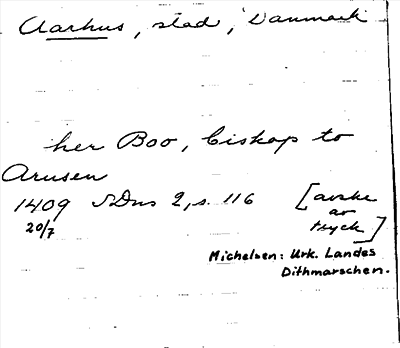 Aarhus, stad, Danmark
her Boo, biskop to
Arusen
1409 SDns 2, s. 116 [avskr
20/7 av
tryck]
Michelsen: Urk. Landes
Dithmarschen.